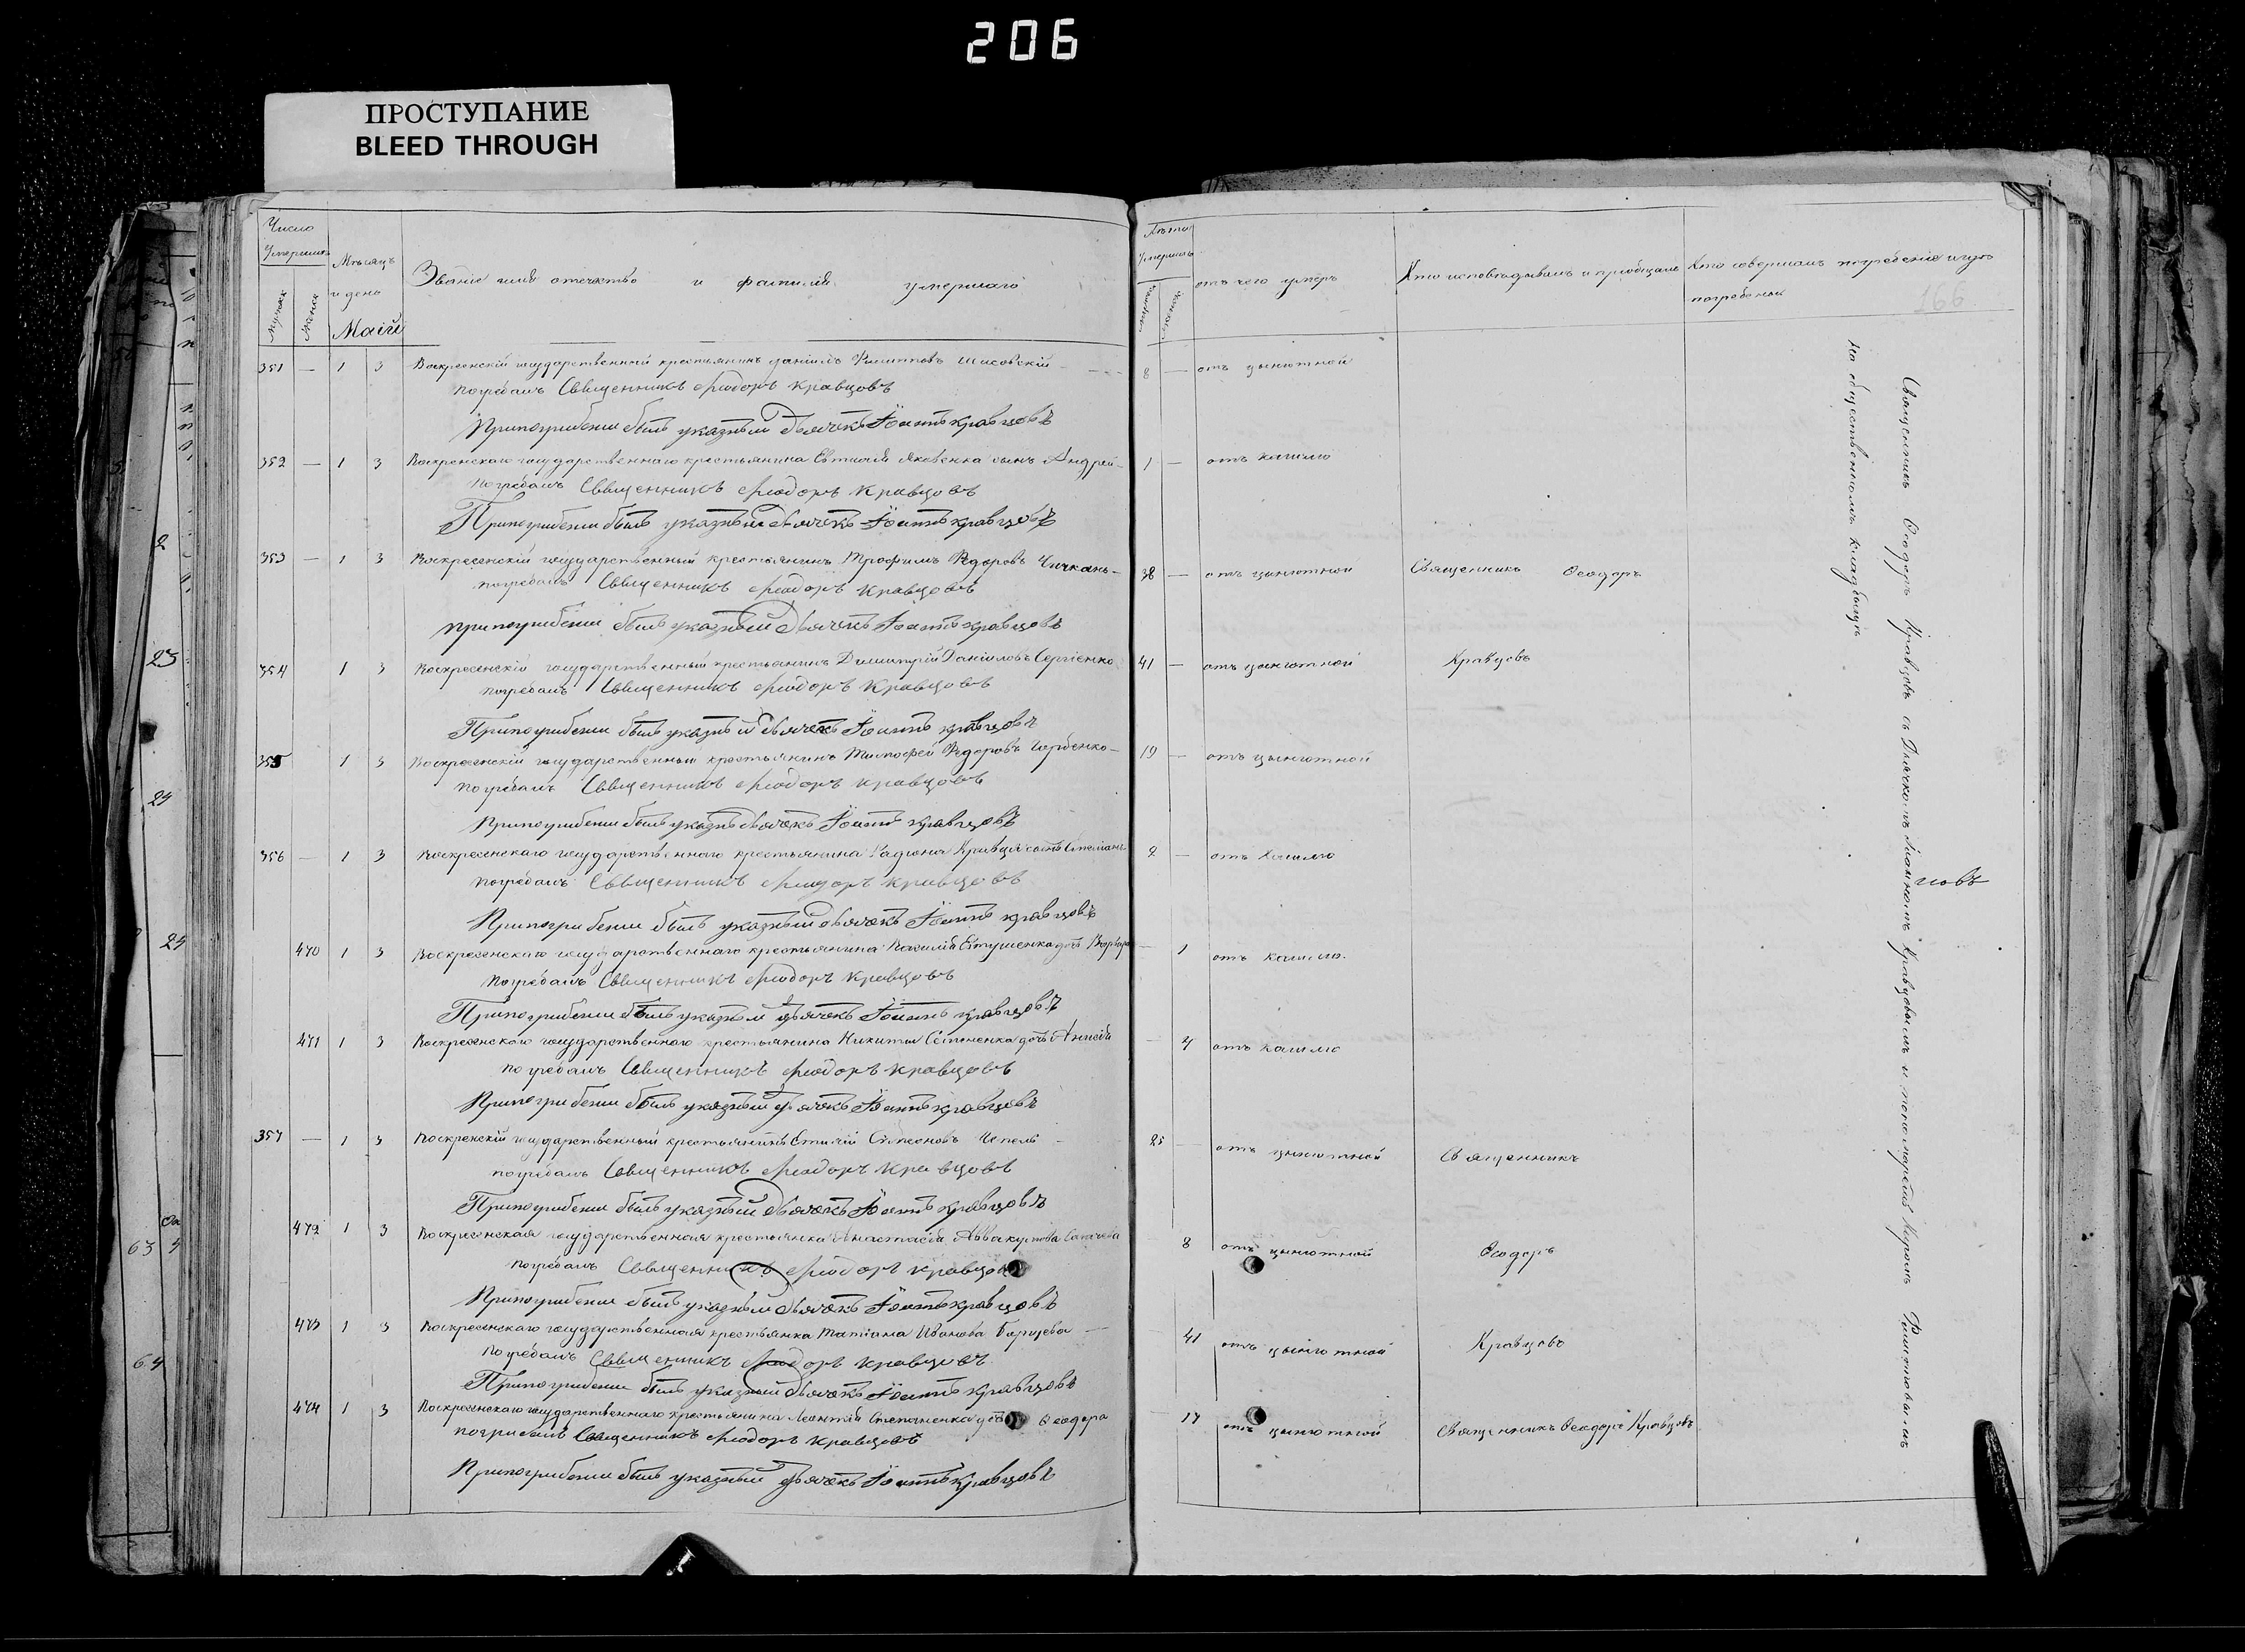 206
ПРОСТУПАНИЕ
BLEED THROUGH
Число Умершихъ
Мужска Женска
Мѣсяцъ и день
Маій
Званіе имя отечество и фамилія умершаго
Лѣта Умершаго
отъ чего умеръ
Кто исповѣдывалъ и пріобщалъ
Кто совершалъ погребеніе и гдѣ погребены
166
351 — 1 3 Воскресенскій государственный крестьянинъ Даніилъ Филипповъ 8 — отъ цынготной
погребалъ Священникъ Ѳеодоръ Кравцовъ
При погребении былъ указный дьячекъ Іоаннъ Кравцовъ
352 — 1 3 Воскресенскаго государственнаго крестьянина Евтихія Яковенка сынъ Андрей 1 — отъ кашлю
погребалъ Священникъ Ѳеодоръ Кравцовъ
При погребении былъ указный дьячекъ Іоаннъ Кравцовъ
353 — 1 3 Воскресенскій государственный крестьянинъ Трофимъ Ѳедоровъ Чичкань 38 — отъ цынготной Священникъ Ѳеодоръ
погребалъ Священникъ Ѳеодоръ Кравцовъ
При погребении былъ указный дьячекъ Іоаннъ Кравцовъ
354 1 3 Воскресенскій государственный крестьянинъ Димитрій Даніиловъ Сергіенко 41 — отъ цынготной Кравцовъ
погребалъ Священникъ Ѳеодоръ Кравцовъ
При погребении былъ указный дьячекъ Іоаннъ Кравцовъ
355 1 3 Воскресенскій государственный крестьянинъ Тимофей Ѳедоровъ Горбенко 19 — отъ цынготной
погребалъ Священникъ Ѳеодоръ Кравцовъ
При погребении былъ указный дьячекъ Іоаннъ Кравцовъ
356 — 1 3 Воскресенскаго государственнаго крестьянина Радиона Кривця сынъ Стефанъ 2 — отъ кашлю
погребалъ Священникъ Ѳеодоръ Кравцовъ
При погребении былъ указный дьячекъ Іоаннъ Кравцовъ
470 1 3 Воскресенскаго государственнаго крестьянина Василія Евтушенка дочь Варвара — 1 отъ кашлю
погребалъ Священникъ Ѳеодоръ Кравцовъ
При погребении былъ указный дьячекъ Іоаннъ Кравцовъ
471 1 3 Воскресенскаго государственнаго крестьянина Никиты дочь Анисія — 4 отъ кашлю
погребалъ Священникъ Ѳеодоръ Кравцовъ
При погребении былъ указный дьячекъ Іоаннъ Кравцовъ
357 — 1 3 Воскресенскій государственный крестьянинъ Симеоновъ 25 отъ цынготной Священникъ
погребалъ Священникъ Ѳеодоръ Кравцовъ
При погребении былъ указный дьячекъ Іоаннъ Кравцовъ
472 1 3 Воскресенская государственная крестьянка Анастасія Аввакумова 8 отъ цынготной Ѳеодоръ
погребалъ Священникъ Ѳеодоръ Кравцовъ
При погребении былъ указный дьячекъ Іоаннъ Кравцовъ
473 1 3 Воскресенскаго государственная крестьянка Татіана Иванова 41 отъ цынготной Кравцовъ
погребалъ Священникъ Ѳеодоръ Кравцовъ
При погребении былъ указный дьячекъ Іоаннъ Кравцовъ
474 1 3 Воскресенскаго государственнаго крестьянина Леонтія Степаненка Ѳеодора 17 отъ цынготной Священникъ Ѳеодоръ Кравцовъ
погребалъ Священникъ Ѳеодоръ Кравцовъ
При погребении былъ указный дьячекъ Іоаннъ Кравцовъ
Священникъ Ѳеодоръ Кравцовъ съ Дьячкомъ Іоанномъ Кравцовымъ и пономаремъ Филиповымъ
на общественномъ кладбищѣ